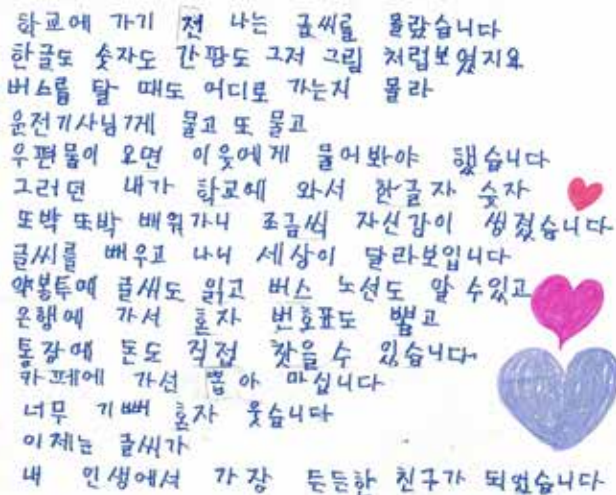 학교에 가기 전 나는 글씨를 몰랐습니다
한글도 숫자도 간판도 그저 그림 처럼보였지요
버스를 탈 때도 어디로 가는지 몰라
운전기사님게 물고 또 물고
우편물이 오면 이웃에게 물어봐야 했습니다
그러던 내가 학교에 와서 한글자 숫자
또박 또박 배워가니 조금씩 자신감이 생겼습니다
글씨를 배우고 나니 세상이 달라보입니다
약봉투에 글씨도 읽고 버스 노선도 알 수있고
은행에 가서 혼자 번호표도 뽑고
통장에 돈도 직접 찾을 수 있습니다
카페에 가선 뽑아 마십니다
너무 기뻐 혼자 웃습니다
이제는 글씨가
내 인생에서 가장 든든한 친구가 되었습니다